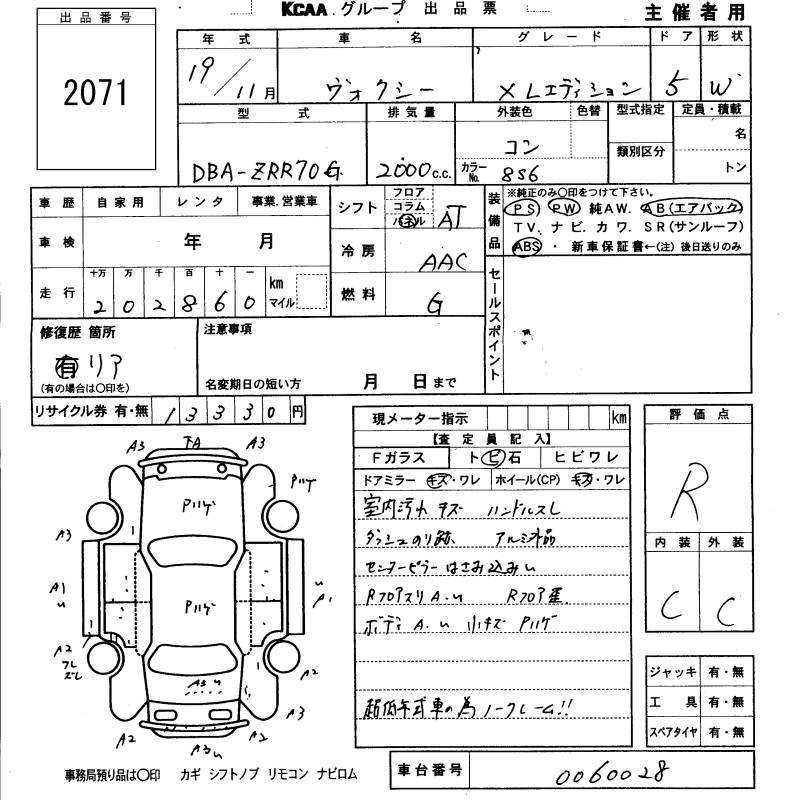 KCAA グループ 出品票
主催者用
出品番号
2071
年式 車名 グレード ドア 形状
19/11月 ヴォクシー XLエディション 5 W
型式 排気量 外装色 色替 型式指定 定員・積載
コン 名
類別区分
DBA-ZRR70G 2000c.c. カラーNo. 8S6 トン
車歴 自家用 レンタ 事業.営業車
シフト フロア コラム パネル AT
装備品
※純正のみ〇印をつけて下さい。
PS PW 純AW. AB(エアバック)
TV. ナビ. カワ. SR(サンルーフ)
ABS ・ 新車保証書←(注) 後日送りのみ
車検 年 月
冷房 AAC
走行 十万 万 千 百 十 一 km マイル
2 0 2 8 6 0
燃料 G
セールスポイント
修復歴 箇所
有 リア
(有の場合は〇印を)
注意事項
名変期日の短い方 月 日まで
リサイクル券 有・無 13330円
現メーター指示 km
【査定員記入】
Fガラス ト ビ 石 ヒビワレ
ドアミラー キズ・ワレ ホイール(CP) キズ・ワレ
室内汚れ キズ ハンドルスレ
ダッシュのり跡 アルミ外品
センターピラーはさみ込みい
RフロアスリA.u Rフロア歪
ボディ A.u 小キズ Pハゲ
超低年式車の為ノークレーム!!
評価点
R
内装 外装
C C
ジャッキ 有・無
工具 有・無
スペアタイヤ 有・無
A3 TA A3
Pハゲ
Pハゲ
A3
A1
u
Pハゲ
u
A1
A2
フレ
ズレ
A3 u
A2
A3
A2 A3u A2
事務局預り品は〇印 カギ シフトノブ リモコン ナビロム
車台番号 0060028